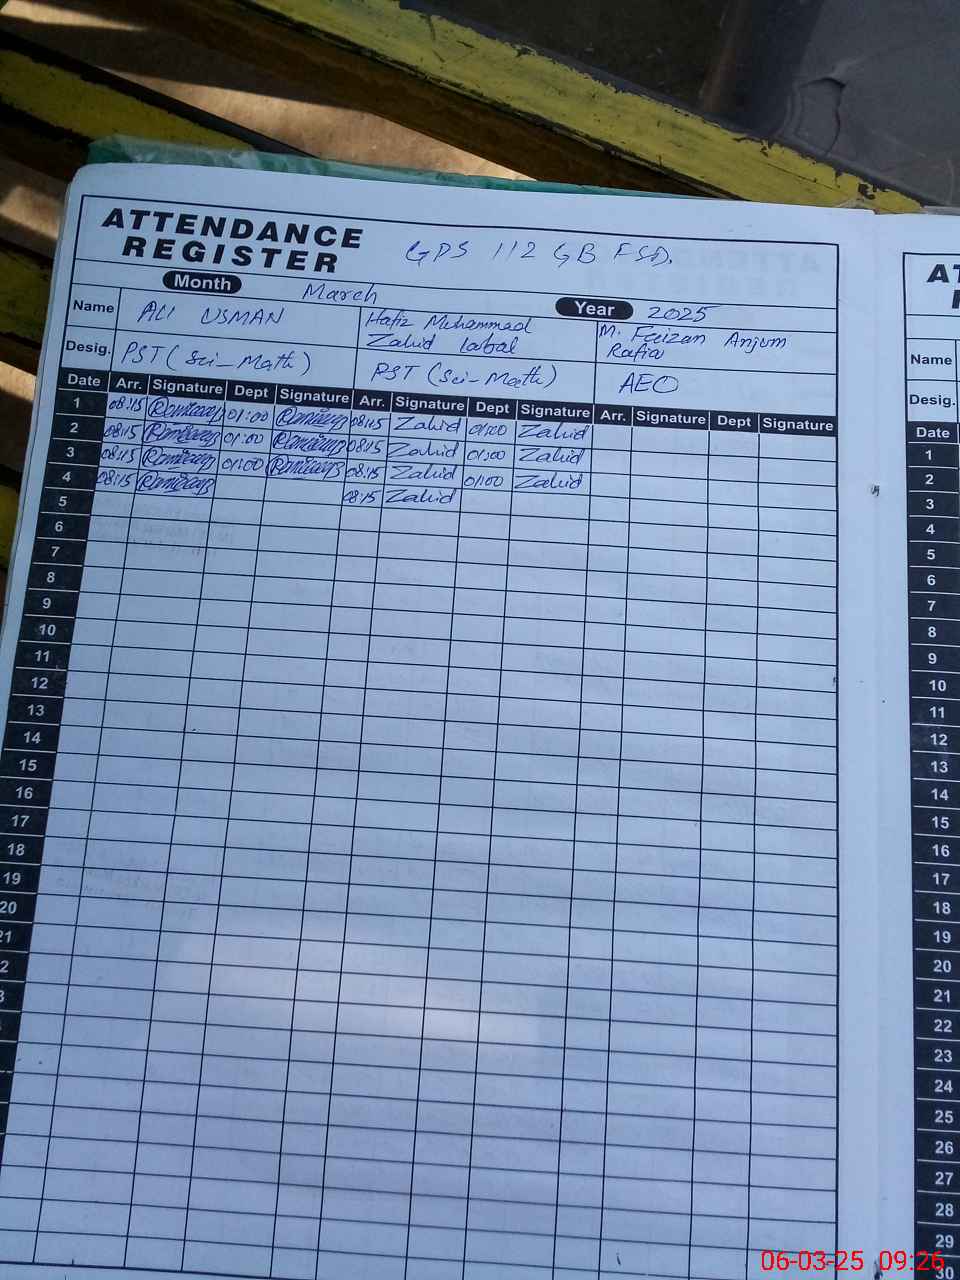 ATTENDANCE
REGISTER
GPS 112 GB FSD.
Month March Year 2025
Name ALI USMAN Hafiz Muhammad Zahid Iqbal M. Faizan Anjum Rafiq
Desig. PST (Sci-Math) PST (Sci-Math) AEO
Date Arr. Signature Dept Signature Arr. Signature Dept Signature Arr. Signature Dept Signature
1 08:15 01:00 08:15 Zahid 01:00 Zahid
2 08:15 01:00 08:15 Zahid 01:00 Zahid
3 08:15 01:00 08:15 Zahid 01:00 Zahid
4 08:15 08:15 Zahid
5
6
7
8
9
10
11
12
13
14
15
16
17
18
19
20
21
2
3
AT
Name
Desig.
Date
1
2
3
4
5
6
7
8
9
10
11
12
13
14
15
16
17
18
19
20
21
22
23
24
25
26
27
28
29
30
06-03-25 09:26